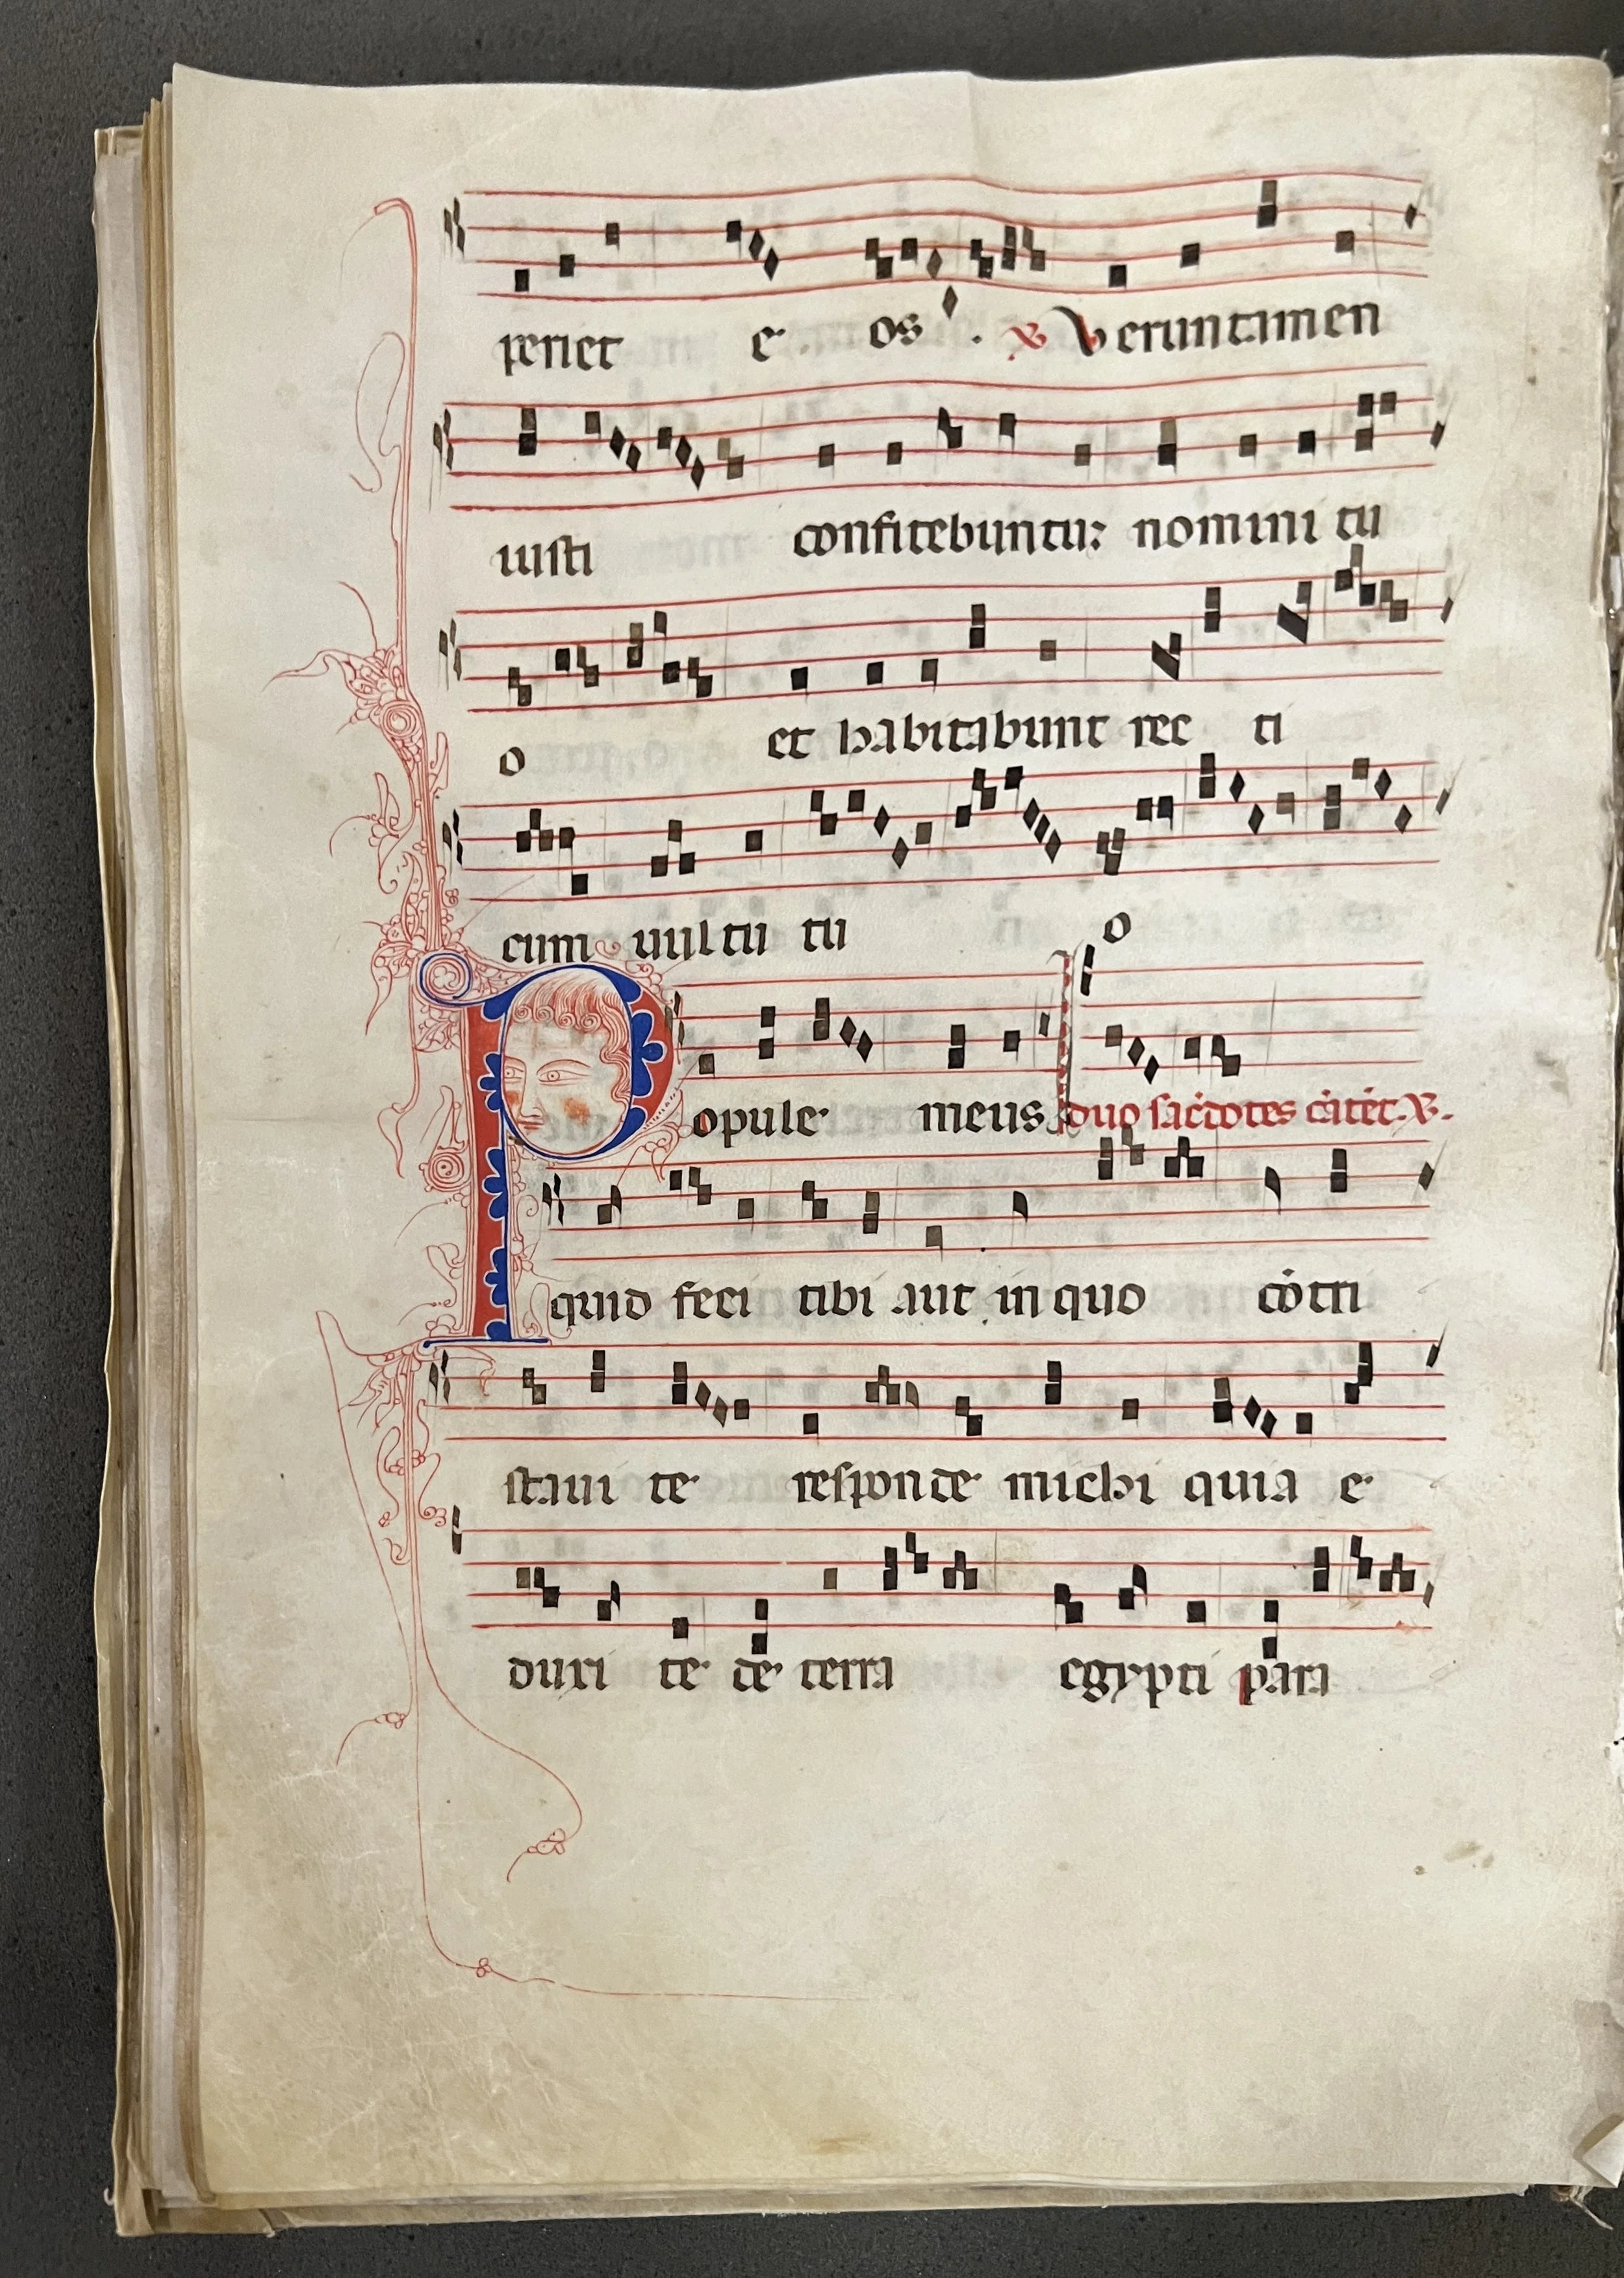 periet e os. ℣ Veruntamen
iusti confitebuntur nomini tu
o et habitabunt rec ti
cum uultu tu o
Popule meus duo sac̄dotes cātēt. ℣.
quid feci tibi aut in quo cōtri
staui te responde michi quia e
duxi te de terra egypti para